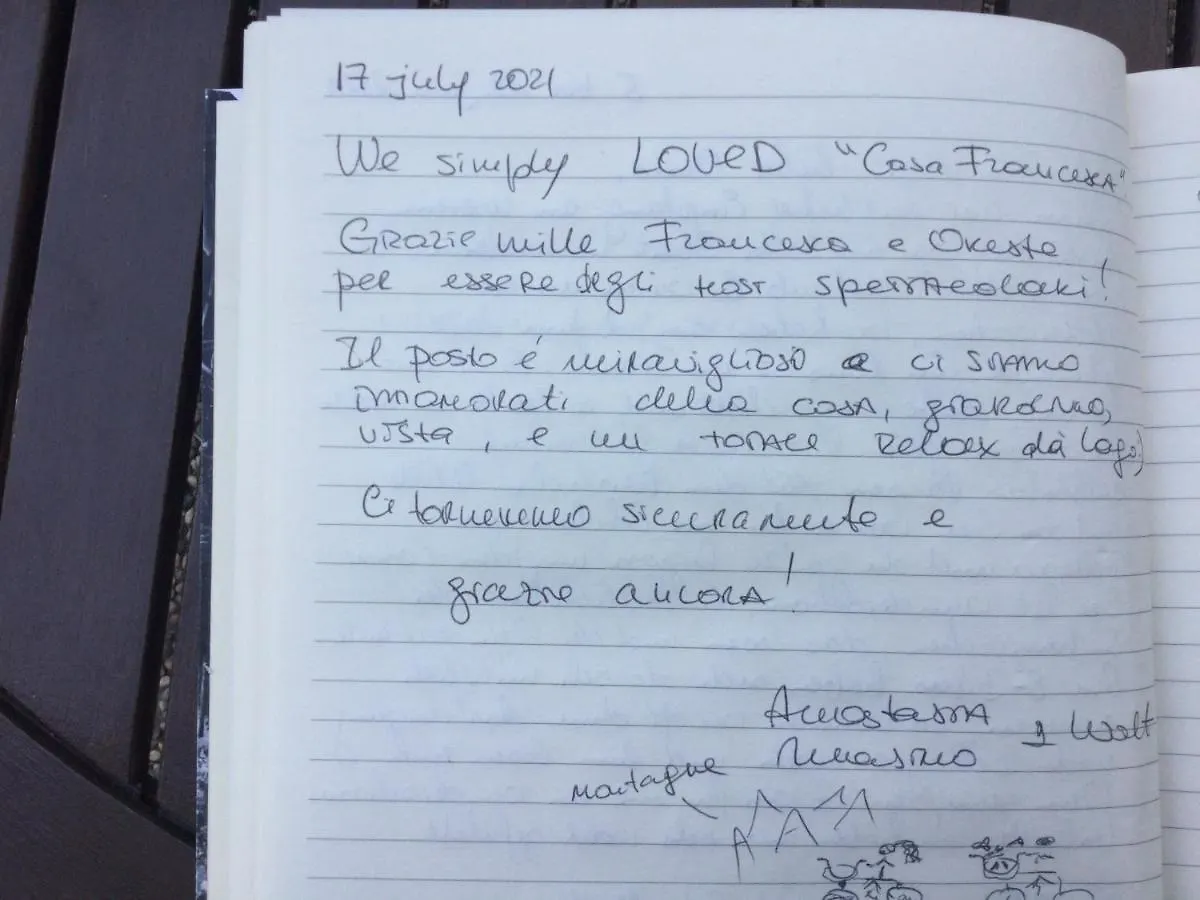 17 july 2021
We simply LOVED "Casa Francesca"
Grazie mille Francesca e Oreste
per essere degli host spettacolari!
Il posto é miraviglioso e ci siamo
innamorati della casa, giardino,
vista, e un totale relax dà lago;)
Ci torneremo sicuramente e
grazie ancora!
Anastasia
& Walt
Massimo
montagne